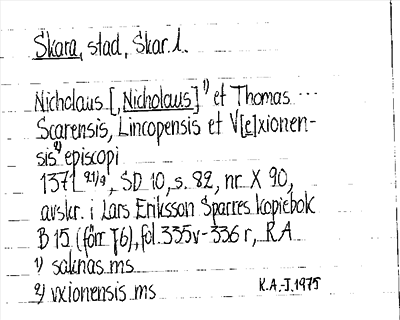 Skara, stad, Skar. l.
Nicholaus [, Nicholaus] 1) et Thomas ...
Scarensis, Lincopensis et V[e]xionen-
sis 2) episcopi
1371 21/9, SD 10, s. 82, nr X 90,
avskr. i Lars Eriksson Sparres kopiebok
B 15 (förr 76), fol. 335v-336r, RA
1) saknas ms
2) vxionensis ms
K.A.-I. 1975